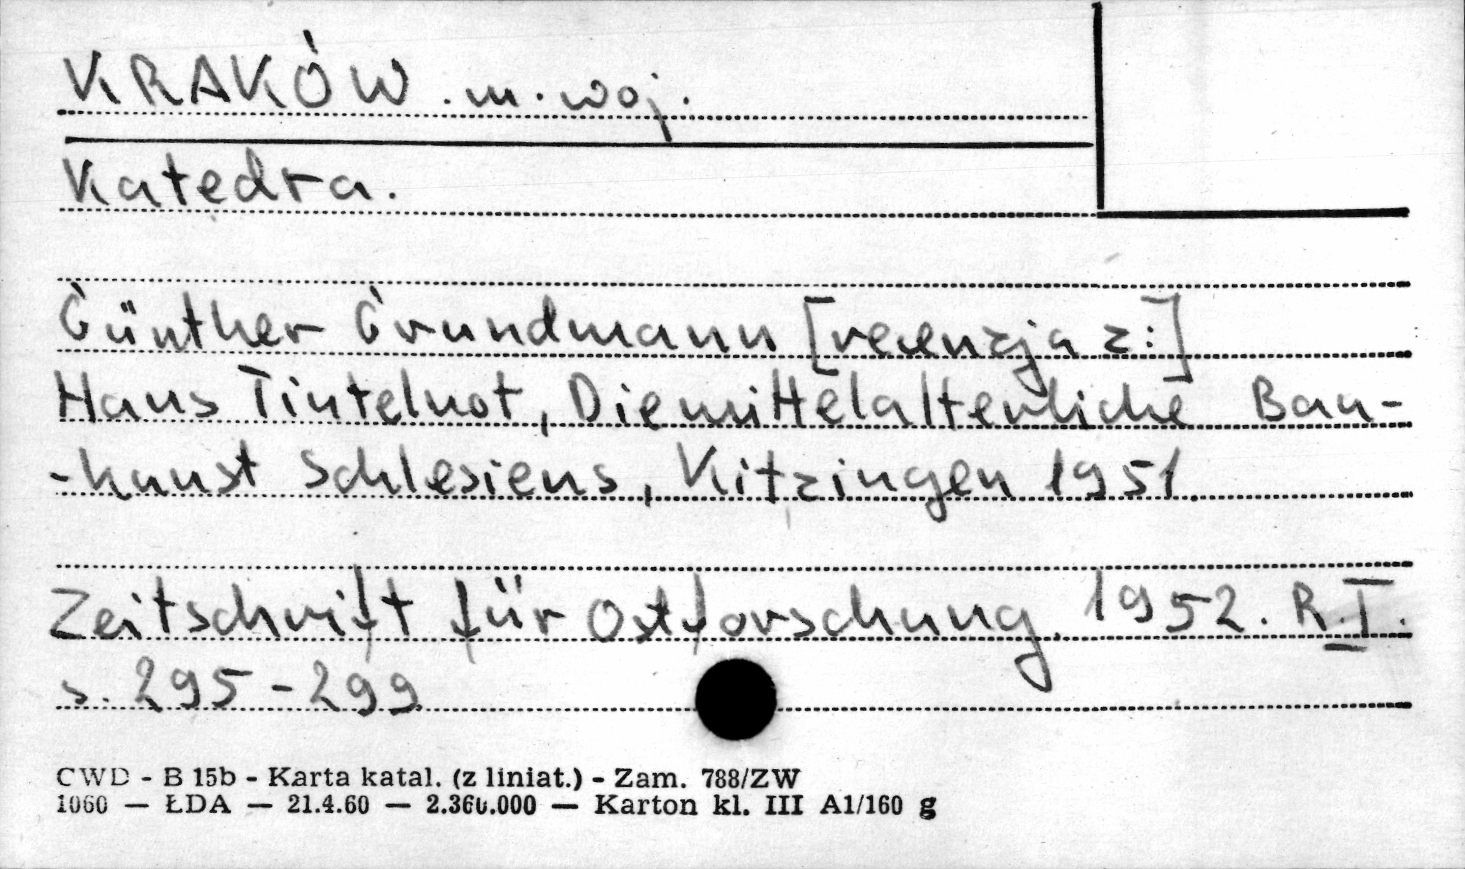 KRAKÓW . m. woj.
Katedra.
Günther Grundmann [recenzja z:]
Hans Tintelnot, Die mittelalterliche Bau-
-kunst Schlesiens, Kitzingen 1951.
Zeitschrift für Ostforschung. 1952. R. I.
s. 295-299
CWD - B 15b - Karta katal. (z liniat.) - Zam. 788/ZW
1060 — ŁDA — 21.4.60 — 2.360.000 — Karton kl. III A1/160 g